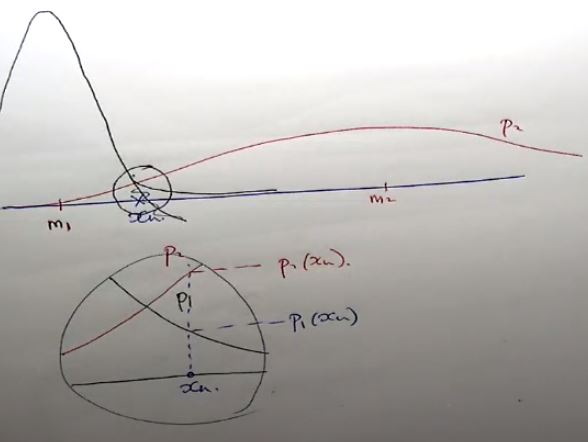 P₂
m₁
xₙ.
m₂
P₂
P₂(xₙ).
P₁
P₁(xₙ)
xₙ.